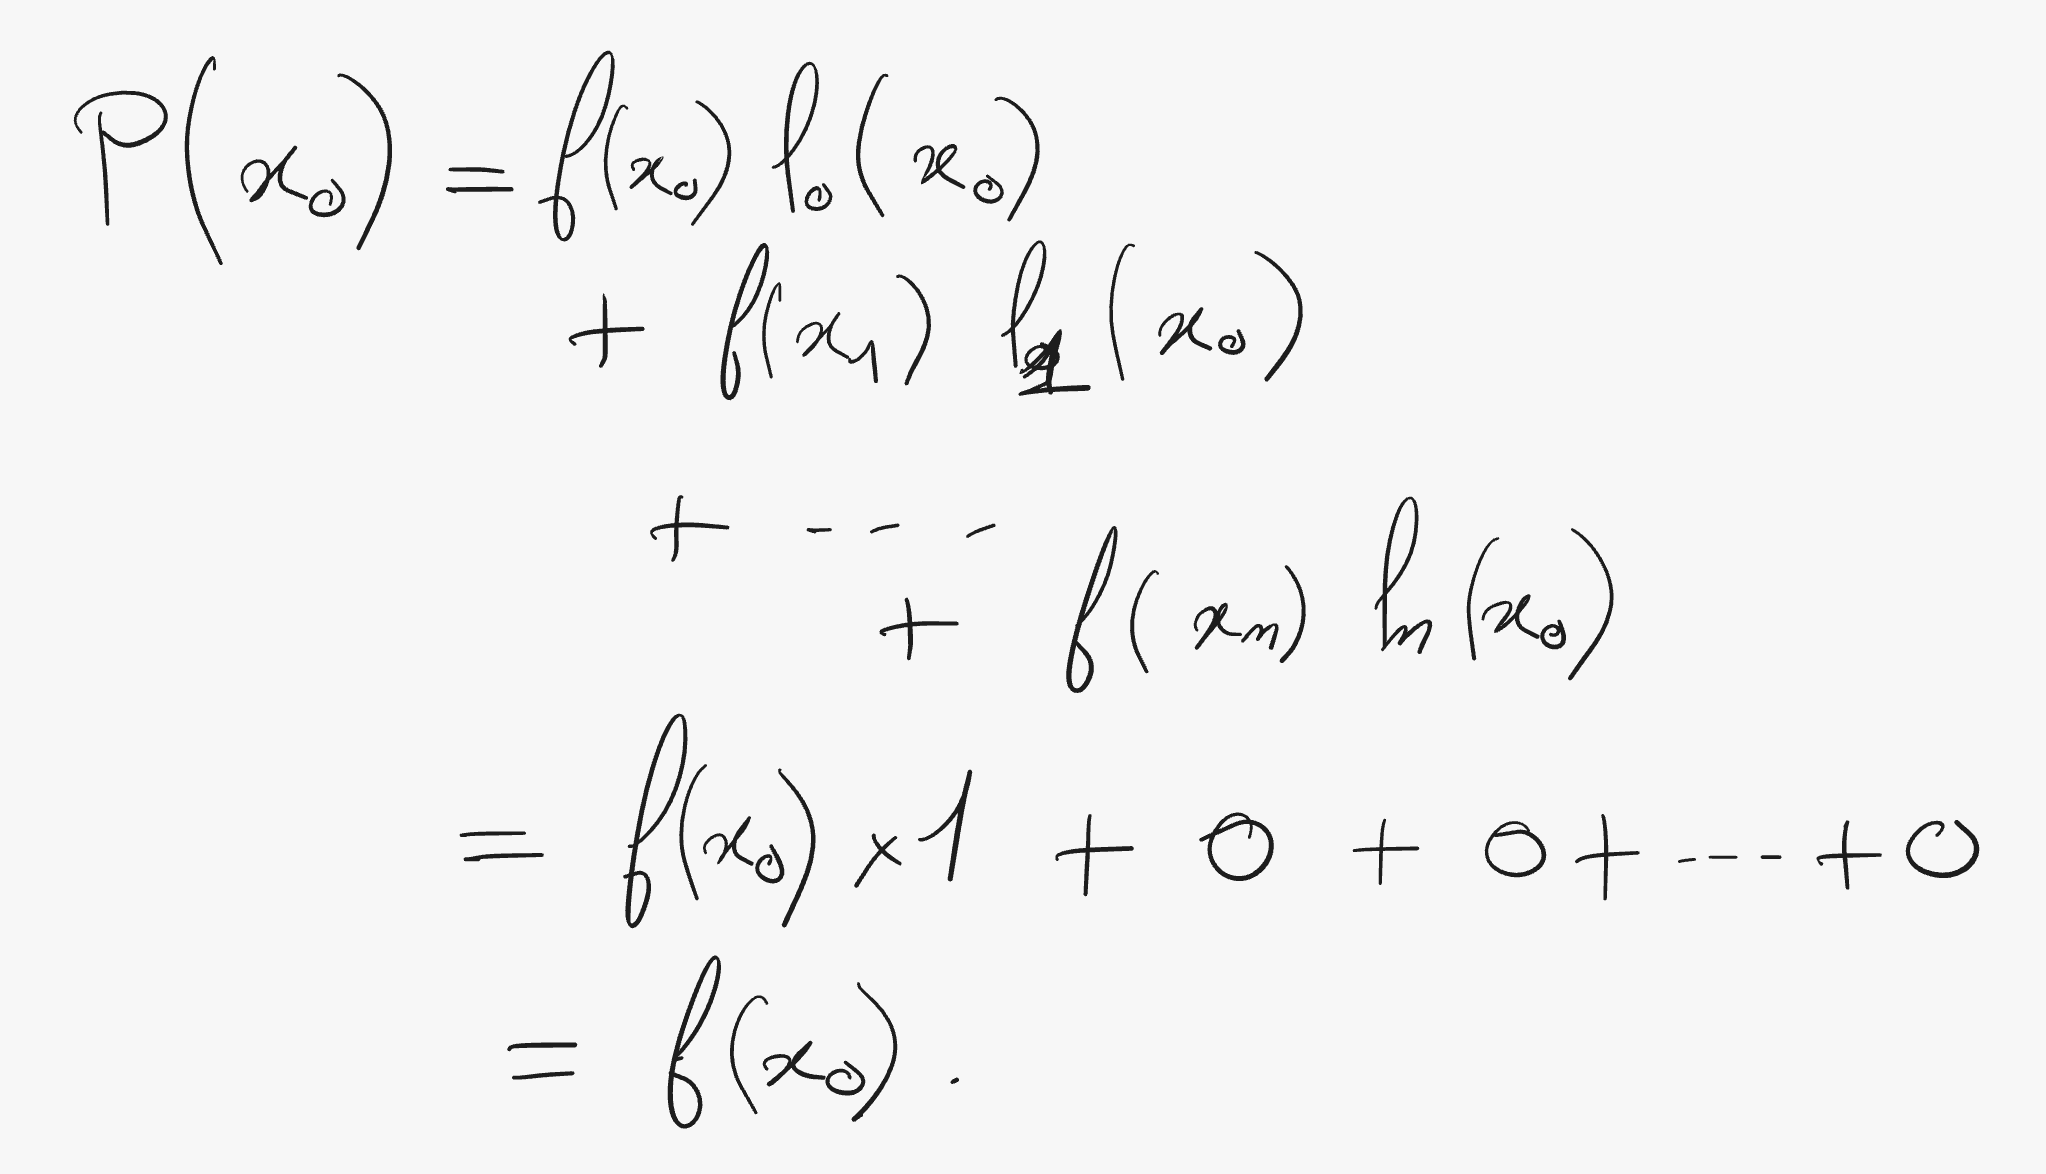 P(x₀) = f(x₀) l₀(x₀)
+ f(x₁) l₁(x₀)
+ - - -
+ f(xₙ) lₙ(x₀)
= f(x₀) × 1 + 0 + 0 + - - - + 0
= f(x₀) .